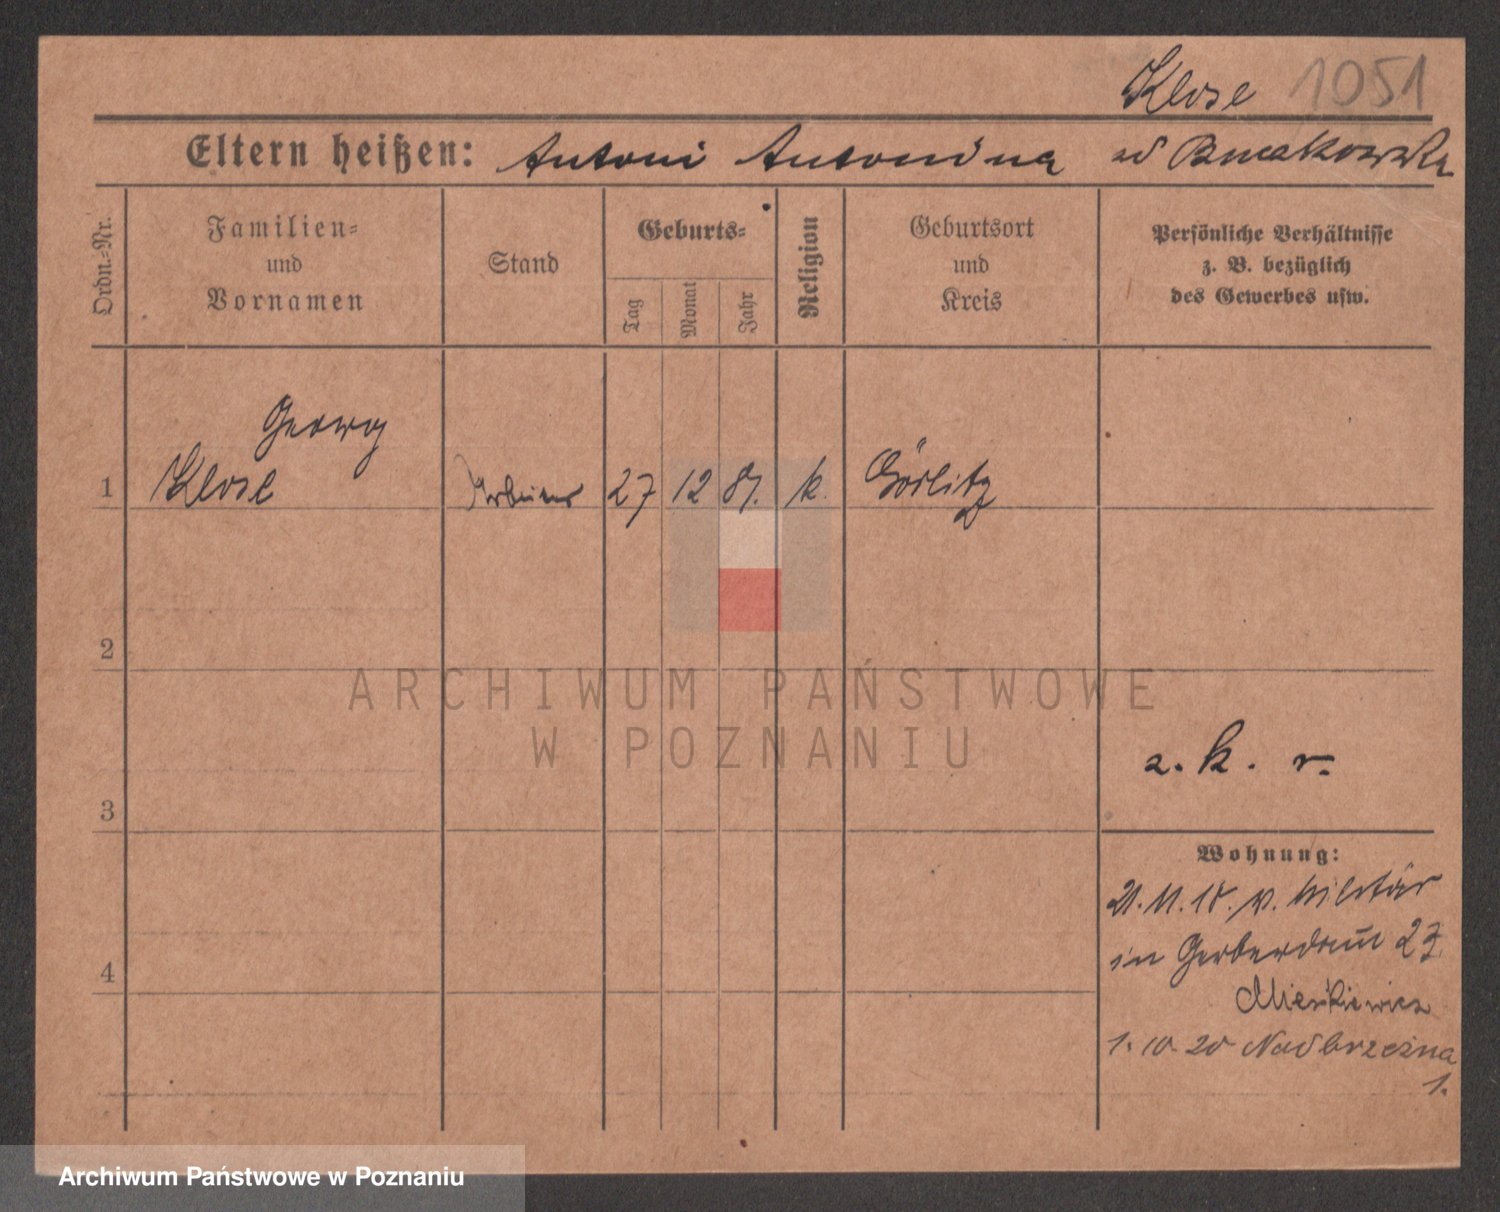 Klose 1051
Eltern heißen: Antoni Antonina
Ordn.-Nr.
Familien-
und
Vornamen
Stand
Geburts-
Tag
Monat
Jahr
Religion
Geburtsort
und
Kreis
Persönliche Verhältnisse
z. B. bezüglich
des Gewerbes usw.
Georg
1 Klose Arbeiter 27 12 k. Görlitz
2
ARCHIWUM PAŃSTWOWE
W POZNANIU
3
Wohnung:
21.11.18. v. Militär
in Gerberdamm 27
4
1. 10. 20 Nadbrzeżna
1.
Archiwum Państwowe w Poznaniu